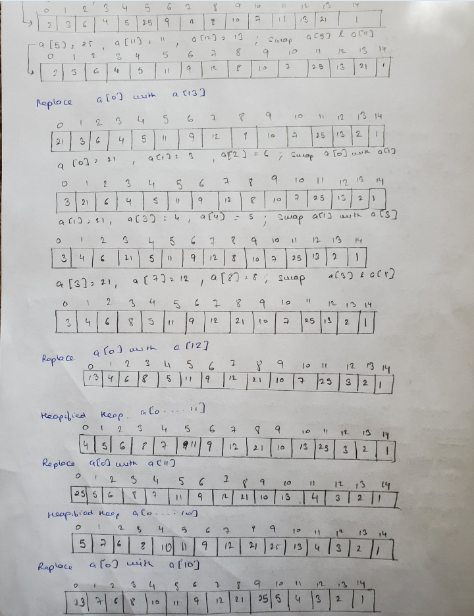 0 1 2 3 4 5 6 7 8 9 10 11 12 13 14
2 3 6 4 5 25 9 8 10 7 11 13 21 1
a[5] = 25, a[11] = 11, a[12] = 13 ; Swap a[5] & a[11]
0 1 2 3 4 5 6 7 8 9 10 11 12 13 14
2 3 6 4 5 11 7 12 8 10 7 25 13 21 1
Replace a[0] with a[13]
0 1 2 3 4 5 6 7 8 9 10 11 12 13 14
21 3 6 4 5 11 9 12 8 9 10 7 25 13 2 1
a[0] = 21, a[1] = 3, a[2] = 6 ; Swap a[0] with a[1]
0 1 2 3 4 5 6 7 8 9 10 11 12 13 14
3 21 6 4 5 11 9 12 8 10 7 25 13 2 1
a[1] = 21, a[3] = 4, a[4] = 5 ; Swap a[1] with a[3]
0 1 2 3 4 5 6 7 8 9 10 11 12 13 14
3 4 6 21 5 11 9 12 8 10 7 25 13 2 1
a[3] = 21, a[7] = 12, a[8] = 8 ; Swap a[3] & a[8]
0 1 2 3 4 5 6 7 8 9 10 11 12 13 14
3 4 6 8 5 11 9 12 21 10 7 25 13 2 1
Replace a[0] with a[12]
0 1 2 3 4 5 6 7 8 9 10 11 12 13 14
13 4 6 8 5 11 9 12 21 10 7 25 3 2 1
Heapified Heap, a[0 ..... 11]
0 1 2 3 4 5 6 7 8 9 10 11 12 13 14
4 5 6 8 7 11 9 12 21 10 13 25 3 2 1
Replace a[0] with a[11]
0 1 2 3 4 5 6 7 8 9 10 11 12 13 14
25 5 6 8 7 11 9 12 21 10 13 4 3 2 1
Heapified Heap a[0 ..... 10]
0 1 2 3 4 5 6 7 8 9 10 11 12 13 14
5 7 6 8 10 11 9 12 21 25 13 4 3 2 1
Replace a[0] with a[10]
0 1 2 3 4 5 6 7 8 9 10 11 12 13 14
7 6 8 10 11 9 12 21 25 5 4 3 2 1